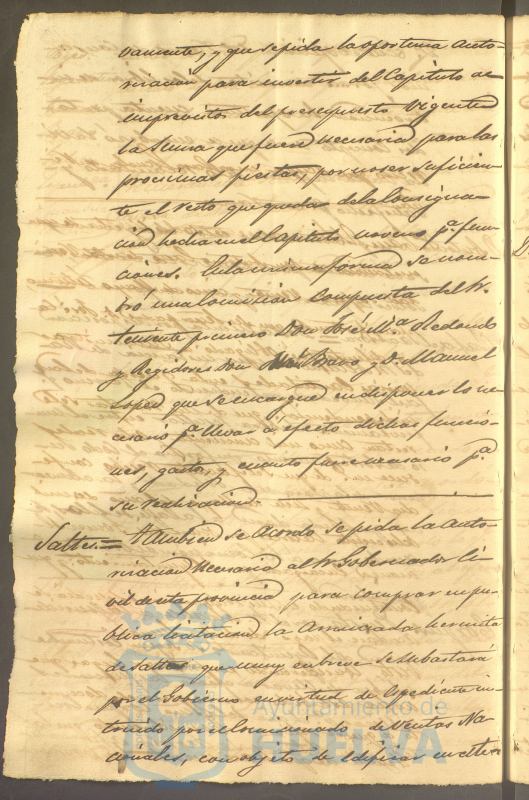 vamente, y que se pida la oportuna auto-
rizacion para invertir del Capitulo de
imprevistos del presupuesto vigente
la Suma que fuere necesaria para las
procsimas fiestas, por no ser suficien-
te el resto que queda de la consigna-
cion hecha en el Capitulo noveno pª. fun-
ciones. En la misma forma se nom-
bró una Comision compuesta del Sr.
teniente primero Don José Mª. Redondo
y Regidores Don Bravo y D. Manuel
Lopez que se encargue en disponer lo ne-
cesario pª. llevar á efecto dichas funcio-
nes, gasto, y cuanto fuere necesario pª.
su realizacion.
Saltes.= Tambien se Acordó se pida la auto-
rizacion necesaria al Sr Gobernador Ci-
vil de esta provincia para comprar en pu-
blica licitacion la Arruinada hermita
de Saltes que muy en breve se subastará
por el Gobierno en virtud de Espediente ins-
truido por el Comisionado de Ventas Na-
cionales, con objeto de edificar en ella
Ayuntamiento de
HUELVA